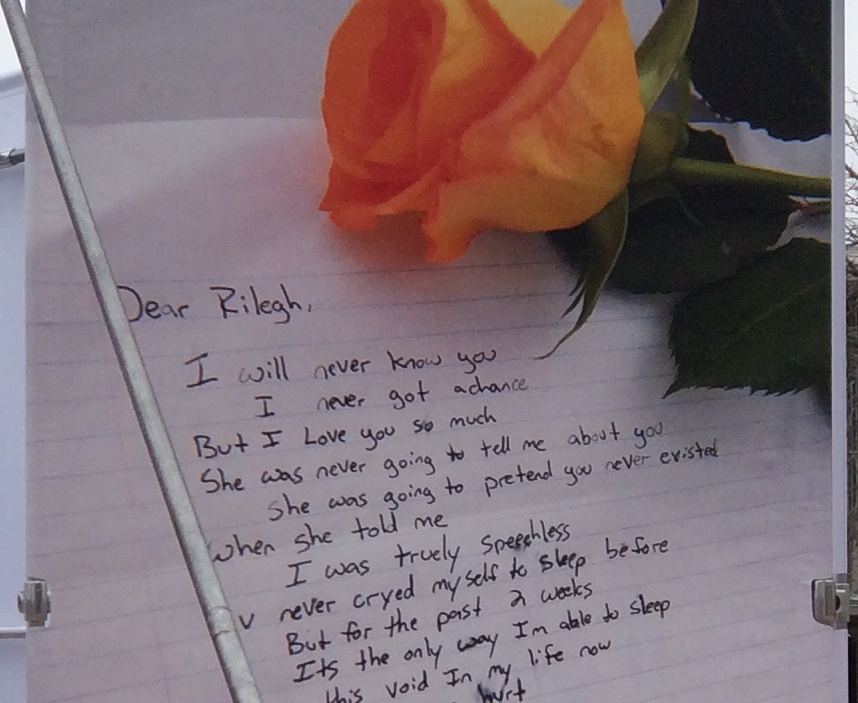 Dear Rilegh,
I will never know you
I never got a chance
But I Love you so much
She was never going to tell me about you
She was going to pretend you never existed
when she told me
I was truely speechless
never cryed myself to sleep before
But for the past 2 weeks
Its the only way I'm able to sleep
this void In my life now
hurt